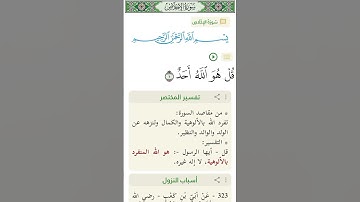 سورة الإخلاص
سورة الإخلاص
بِسْمِ اللَّهِ الرَّحْمَٰنِ الرَّحِيمِ
قُلْ هُوَ ٱللَّهُ أَحَدٌ ١
تفسير المختصر
• من مقاصد السورة:
تفرد الله بالألوهية والكمال وتنزهه عن
الولد والوالد والنظير.
• التفسير:
قل - أيها الرسول -: هو الله المنفرد
بالألوهية، لا إله غيره.
أسباب النزول
323 - عَنْ أُبَيِّ بْنِ كَعْبٍ - رضي الله